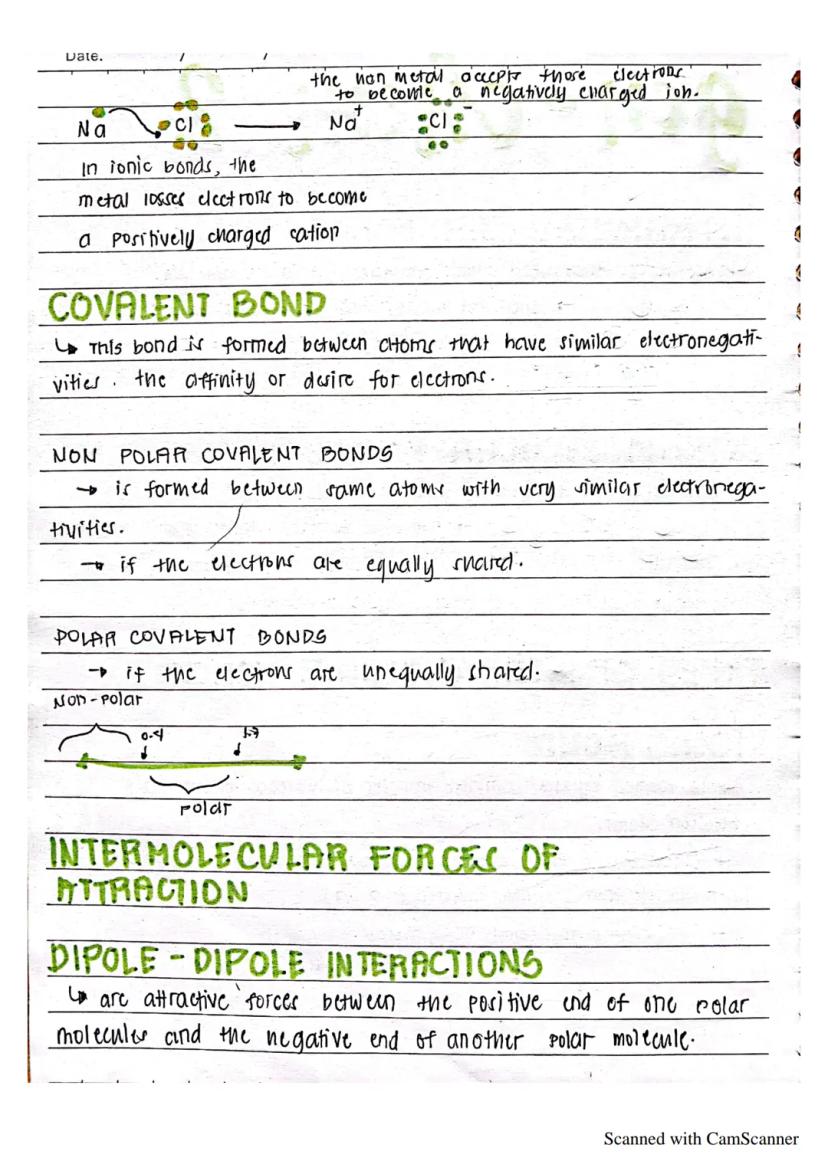 Date. / /
the non metal accepts those electrons
to become a negatively charged ion.
Na Cl → Na+ Cl-
In ionic bonds, the
metal losses electrons to become
a positively charged cation
COVALENT BOND
↳ This bond is formed between atoms that have similar electronegati-
vities. the affinity or desire for electrons.
NON POLAR COVALENT BONDS
→ is formed between same atoms with very similar electronega-
tivities.
→ if the electrons are equally shared.
POLAR COVALENT BONDS
→ if the electrons are unequally shared.
Non-polar
0.4 1.7
polar
INTERMOLECULAR FORCES OF
ATTRACTION
DIPOLE - DIPOLE INTERACTIONS
↳ are attractive forces between the positive end of one polar
molecules and the negative end of another polar molecule.
Scanned with CamScanner